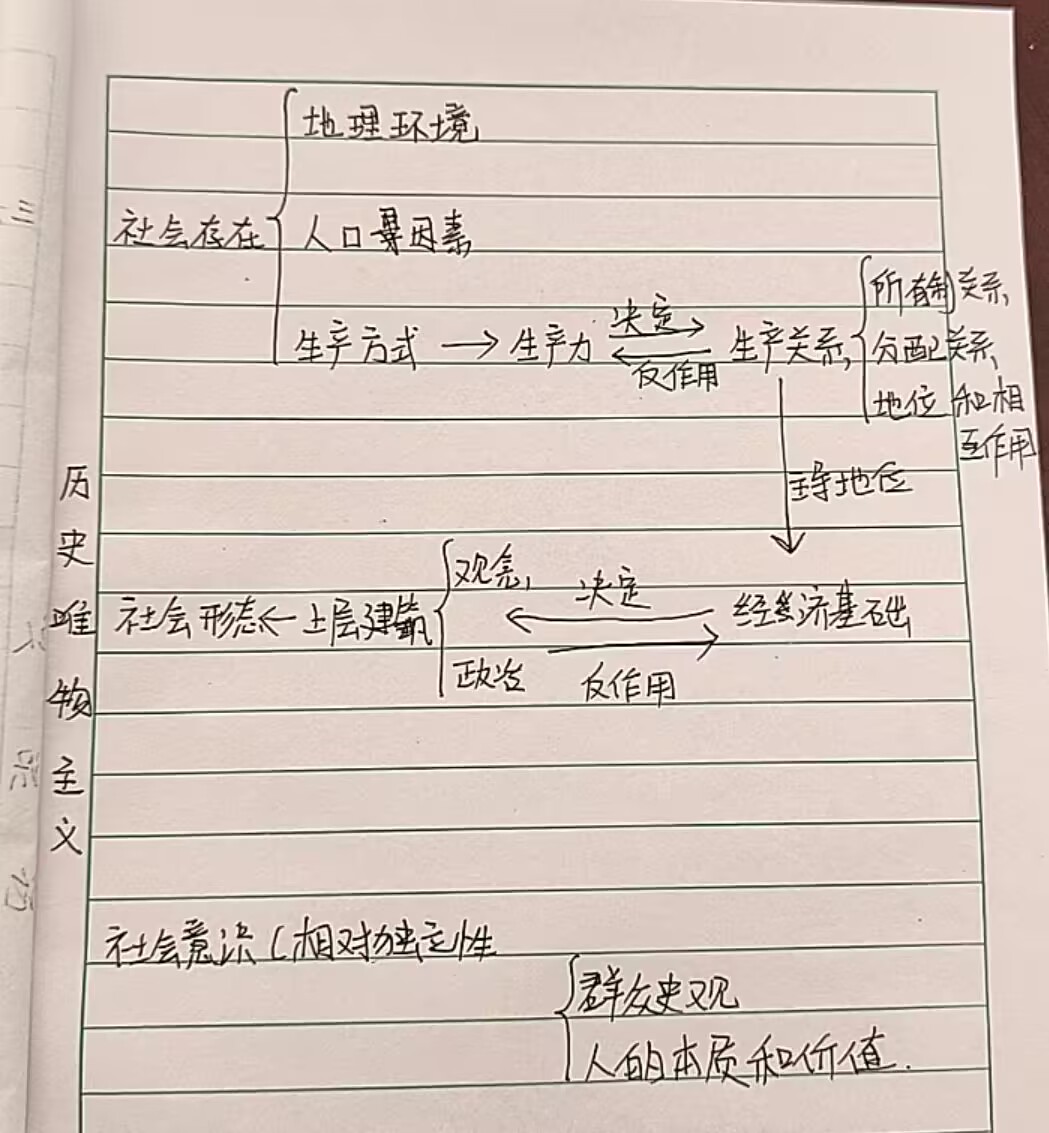 地理环境
社会存在
人口因素
所有制关系、
决定
生产方式 → 生产力
生产关系、
分配关系、
反作用
地位和相
互作用
主导地位
历史唯物主义
观念、
决定
社会形态← 上层建筑
经济基础
政治
反作用
社会意识(相对独立性
群众史观
人的本质和价值.